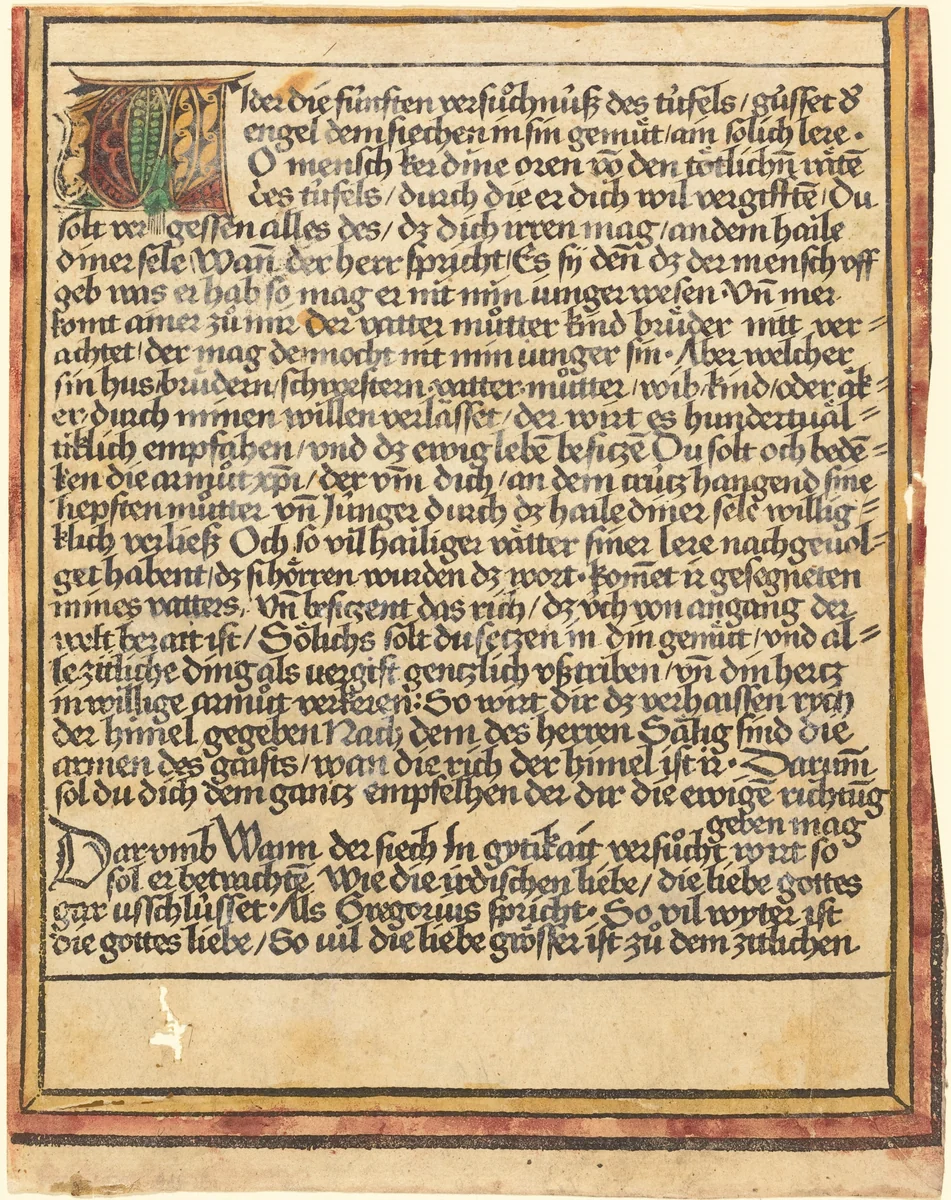 Wider die fünften versuͦchnuͤß des tüfels / güsset dˢ
engel dem siechen in sin gemuͤt / ain solich lere ·
O mensch ker dine oren võ den toͤtlichñ raͤtẽ
des tüfels / durch die er dich wil vergifftẽ / Du
solt ver gessen alles des / dz dich irren mag / an dem haile
diner sele Wañ der herr spricht / Es sÿ deñ dz der mensch vff
geb was er hab so mag er nit min iunger wesen · Vñ mer
komt ainer zuͦ mir der vatter muͦtter kind bruͤder nitt ver =
achtet / der mag dennocht nit min iunger sin · Aber welcher
sin hus / bruͤdern / schwestern · vatter · muͦtter / wib / kind / oder aͤk =
er / durch minen willen verlaͤsset / der wirt es hundertuaͤl =
tiklich empfahen / vnd dz ewig lebẽ besiczẽ Du solt och bedẽ =
ken die armuͦt xp̃i / der vm̃ dich / an dem crütz hangend sine
liepsten muͦtter vñ Jünger durch dz haile diner sele willig =
klich verließ Och so vil hailiger vaͤtter siner lere nachgeuol =
get habent / dz si hoͤrren wurden dz wort · kom̃et ir gesegneten
mines vatters / Vñ besiczent das rich / dz vch von angang der
welt berait ist / Soͤlichs solt du setzen in din gemuͤt / vnd al =
le zitliche ding als vergift gentzlich vßtriben / vñ din hertz
in willige armuͦt verkeren : So wirt dir dz verhaissen rych
der himel gegeben Nach dem des herren Saͤlig sind die
armen des gaists / wan die rich der himel ist ir · Darum̃
sol du dich dem gantz empfelhen der dir die ewigẽ richtũg
geben mag
Darvmb Wann der siech In gytikait versuͦcht wirt so
sol er betrachtẽ Wie die irdischen liebe / die liebe gottes
gar usschlüsset · Als Gregorius spricht · So vil wyter ist
die gottes liebe / So uil die liebe groͤsser ist zuͦ dem zitlichen